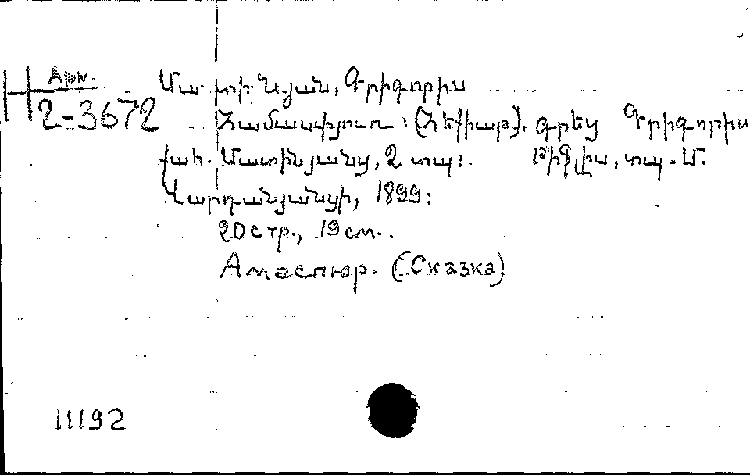 Арм.
2-3672
Մատինյան, Գրիգորիս
Համասփյուռ: (Հեքիաթ). գրեց Գրիգորիս
քահ. Մատինյանց, 2 տպ:. Թիֆլիս, տպ. Մ.
Վարդանյանցի, 1899:
20 стр., 19 см..
Амаспюр. (Сказка)
11192